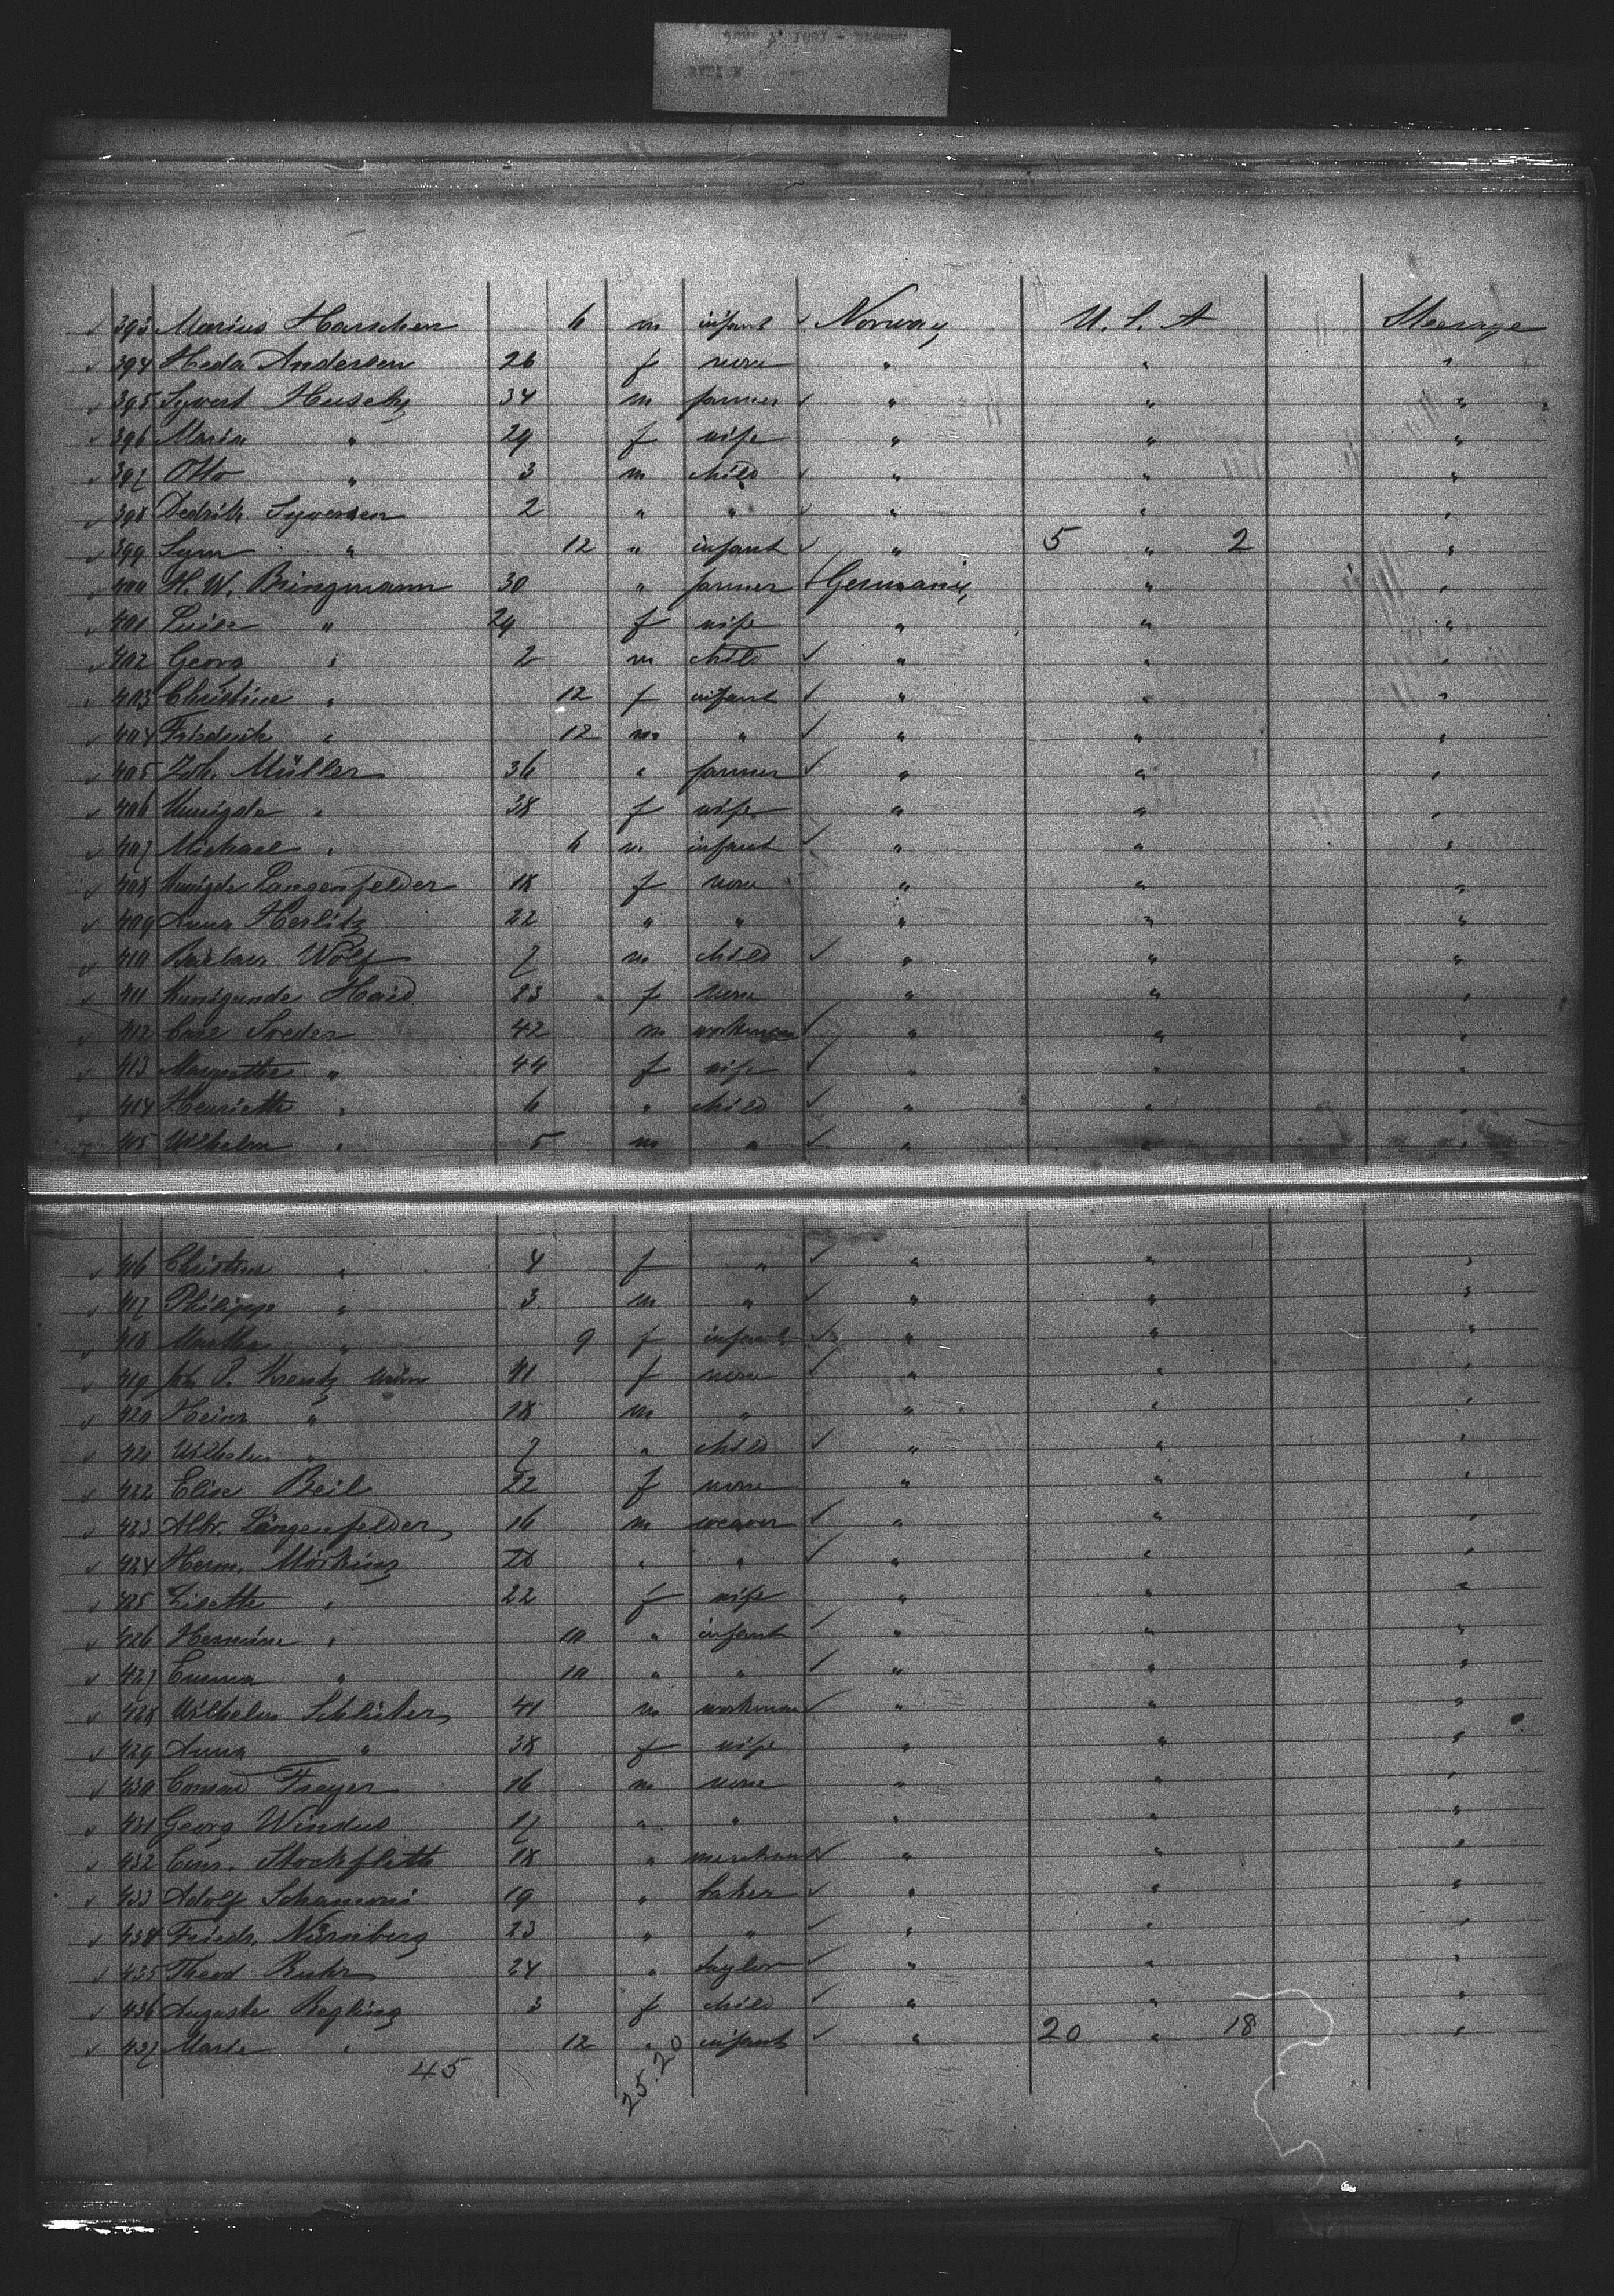 393 Marius Harschen 6 m infant Norway U. S. A Steerage
394 Heda Andersen 26 f none " " "
395 Syvert Huseby 34 m farmer " " "
396 Maria " 29 f wife " " "
397 Otto " 3 m child " " "
398 Dedrik Syversen 2 " " " " "
399 Sym " 12 " infant " 5 " 2 "
400 H. W. Bringmann 30 " farmer Germany " "
401 Luise " 29 f wife " " "
402 Georg " 2 m child " " "
403 Christine " 12 f infant " " "
404 Friedrich " 12 m " " " "
405 Joh. Müller 36 " farmer " " "
406 Kunigde " 38 f wife " " "
407 Michael " 6 m infant " " "
408 Kunigde Langenfelder 18 f none " " "
409 Anna Herlitz 22 " " " " "
410 Wolf 7 m child " " "
411 Kunigunde Haid 23 f none " " "
412 Carl Soeder 42 m workman " " "
413 Margrethe " 44 f wife " " "
414 Henriette " 6 " child " " "
415 Wilhelm " 5 m " " " "
416 Christine " 4 f " " " "
417 Philipp " 3 m " " " "
418 Martha " 9 f infant " " "
419 Joh. P. Kreutz 41 f none " " "
420 Heinr " 18 m " " " "
421 Wilhelm " 7 " child " " "
422 Elise Beil 22 f none " " "
423 Langenfelder 16 m weaver " " "
424 Herm. Mörking 28 " " " " "
425 Lisette " 22 f wife " " "
426 Hermine " 10 " infant " " "
427 Emma " 10 " " " " "
428 Wilhelm Schlüter 41 m workman " " "
429 Anna " 38 f wife " " "
430 Conrad Freyer 16 m none " " "
431 Georg Windus 17 " " " " "
432 Stockfleth 18 " merchant " " "
433 Adolf Schamoni 19 " baker " " "
434 Friedr. Nürnberg 23 " " " " "
435 Theod Ruhr 24 " taylor " " "
436 Auguste Regling 3 f child " " "
437 Marie " 12 " infant " 20 " 18 "
45 25.20